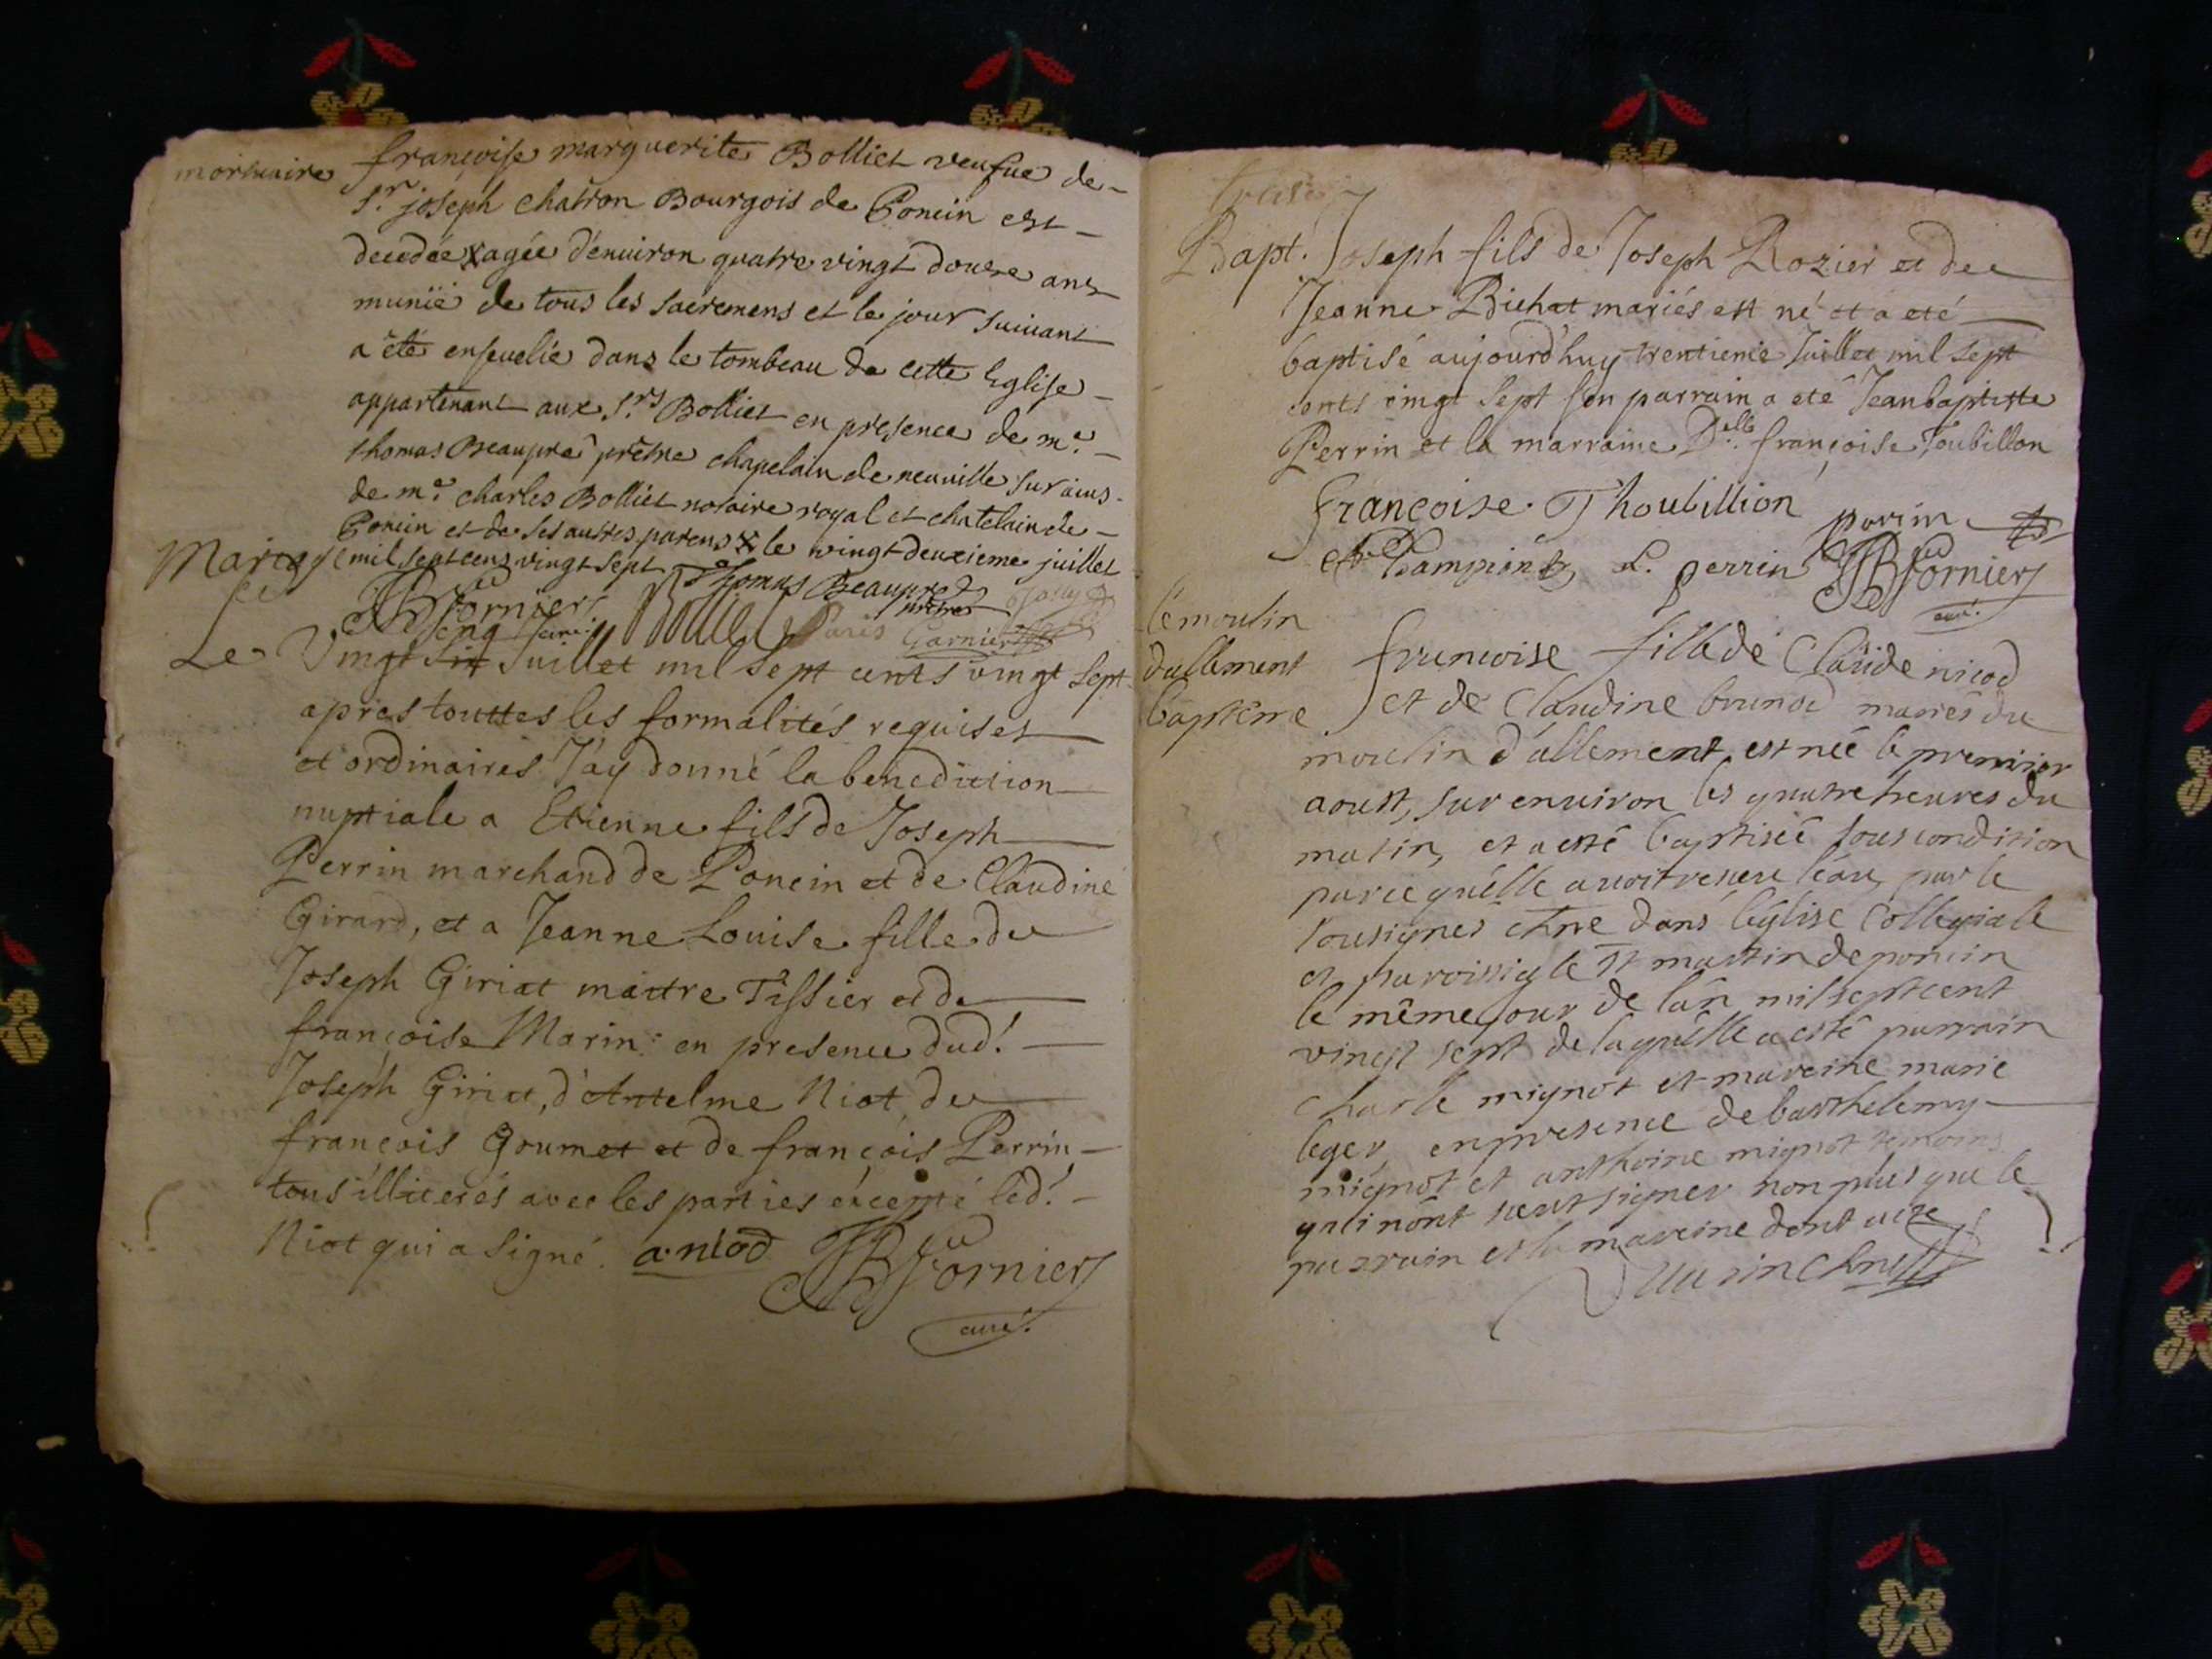 mortuaire
françoise marguerite Bolliet veufue de
Sr. joseph chatron Bourgois de Poncin est
decedée x agée d'enuiron quatre vingt douze ans
munië de tous les sacremens et le jour suiuant
a été enseuelie dans le tombeau de cette Eglise
appartenant aux Srs Bolliet en presence de me.
thomas Beaupré prêtre chapelain de neuuille sur ains
de me. charles Bolliet notaire royal et chatelain de
Poncin et de ses autres parens x le vingt deuxieme juillet
mil sept cens vingt sept Thomas Beaupre
prêtre
JB Fornier Bolliet Paris Garnier
curé
Mariage
Le Vingt six Juillet mil sept cents vingt sept
apres touttes les formalités requises
et ordinaires J'ay donné la benediction
nuptiale a Etienne fils de Joseph
Perrin marchand de Poncin et de Claudine
Girard, et a Jeanne Louise fille de
Joseph Giriat maitre Tissier et de
françoise Marin: en presence dud!
Joseph Giriat, d'Antelme Niot, de
françois Goumet et de françois Perrin
tous illiterés avec les parties éxcepté led!
Niot qui a signé. a niod JB Fornier
curé.
Bapt. Joseph fils de Joseph Rozier et de
Jeanne Bichat mariés est né et a eté
baptisé aujourd'huy trentieme Juillet mil sept
cents vingt sept son parrain a eté Jean baptiste
Perrin et la marraine Delle françoise Toubillon
françoise Thoubillion perrin
Champion L. perrin JB Fornier
curé.
le moulin
dallement
baptême
francoise fille de Claude nicod
et de Claudine brunod mariés du
moulin d'allement, est née le premier
aoust, sur enuiron les quatre heures du
matin, et a esté baptiseé sous condition
parce qu'elle auoit receu l'eau, par le
sousignes chne dans l'église Collegiale
et parroissiale st martin de poncin
le même jour de l'an mil sept cent
vingt sept de laquelle a esté parrain
charle mignot et mareine marie
leger en presence de barthelemy
mignot et anthoine mignot temoins
qui n'ont sceut signer non plus que le
parrain et la mareine dont acte